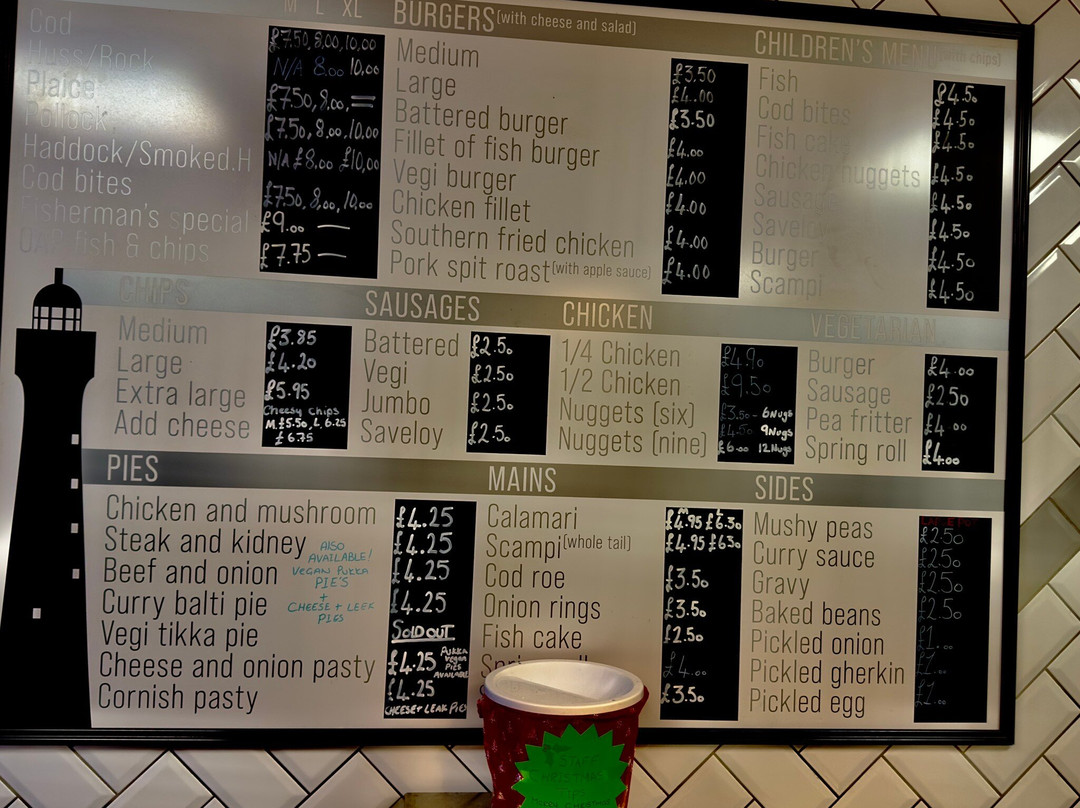 M L XL
Cod £7.50, 8.00, 10.00
Huss/Rock N/A 8.00 10.00
Plaice £7.50, 8.00, =
Pollock £7.50, 8.00, 10.00
Haddock/Smoked.H N/A £8.00 £10.00
Cod bites £7.50, 8.00, 10.00
Fisherman's special £9.00 —
fish & chips £7.75 —
BURGERS (with cheese and salad)
Medium £3.50
Large £4.00
Battered burger £3.50
Fillet of fish burger £4.00
Vegi burger £4.00
Chicken fillet £4.00
Southern fried chicken £4.00
Pork spit roast (with apple sauce) £4.00
CHILDREN'S MENU (with chips)
Fish £4.50
Cod bites £4.50
Fish cake £4.50
Chicken nuggets £4.50
Sausage £4.50
Saveloy £4.50
Burger £4.50
Scampi £4.50
CHIPS
Medium £3.85
Large £4.20
Extra large £5.95
Add cheese
Cheesy Chips
M.£5.50, L 6.25
£6.75
SAUSAGES
Battered £2.50
Vegi £2.50
Jumbo £2.50
Saveloy £2.50
CHICKEN
1/4 Chicken £4.90
1/2 Chicken £9.50
Nuggets (six) £3.50 - 6Nugs
Nuggets (nine) £4.50 9Nugs
£6.00 12Nugs
VEGETARIAN
Burger £4.00
Sausage £2.50
Pea fritter £4.00
Spring roll £4.00
PIES
Chicken and mushroom £4.25
Steak and kidney £4.25
Beef and onion £4.25
Curry balti pie £4.25
Vegi tikka pie SOLD OUT
Cheese and onion pasty £4.25
Cornish pasty £4.25
ALSO
AVAILABLE!
VEGAN PUKKA
PIE'S
+
CHEESE + LEEK
PIES
PUKKA
Vegan
PIES
AVAILABLE
CHEESE + LEAK PIES
MAINS
M L
Calamari £4.95 £6.30
Scampi (whole tail) £4.95 £6.30
Cod roe £3.50
Onion rings £3.50
Fish cake £2.50
£4.00
£3.50
SIDES
Mushy peas £2.50
Curry sauce £2.50
Gravy £2.50
Baked beans £2.50
Pickled onion £1
Pickled gherkin £1
Pickled egg £1
STAFF
CHRISTMAS
TIPS